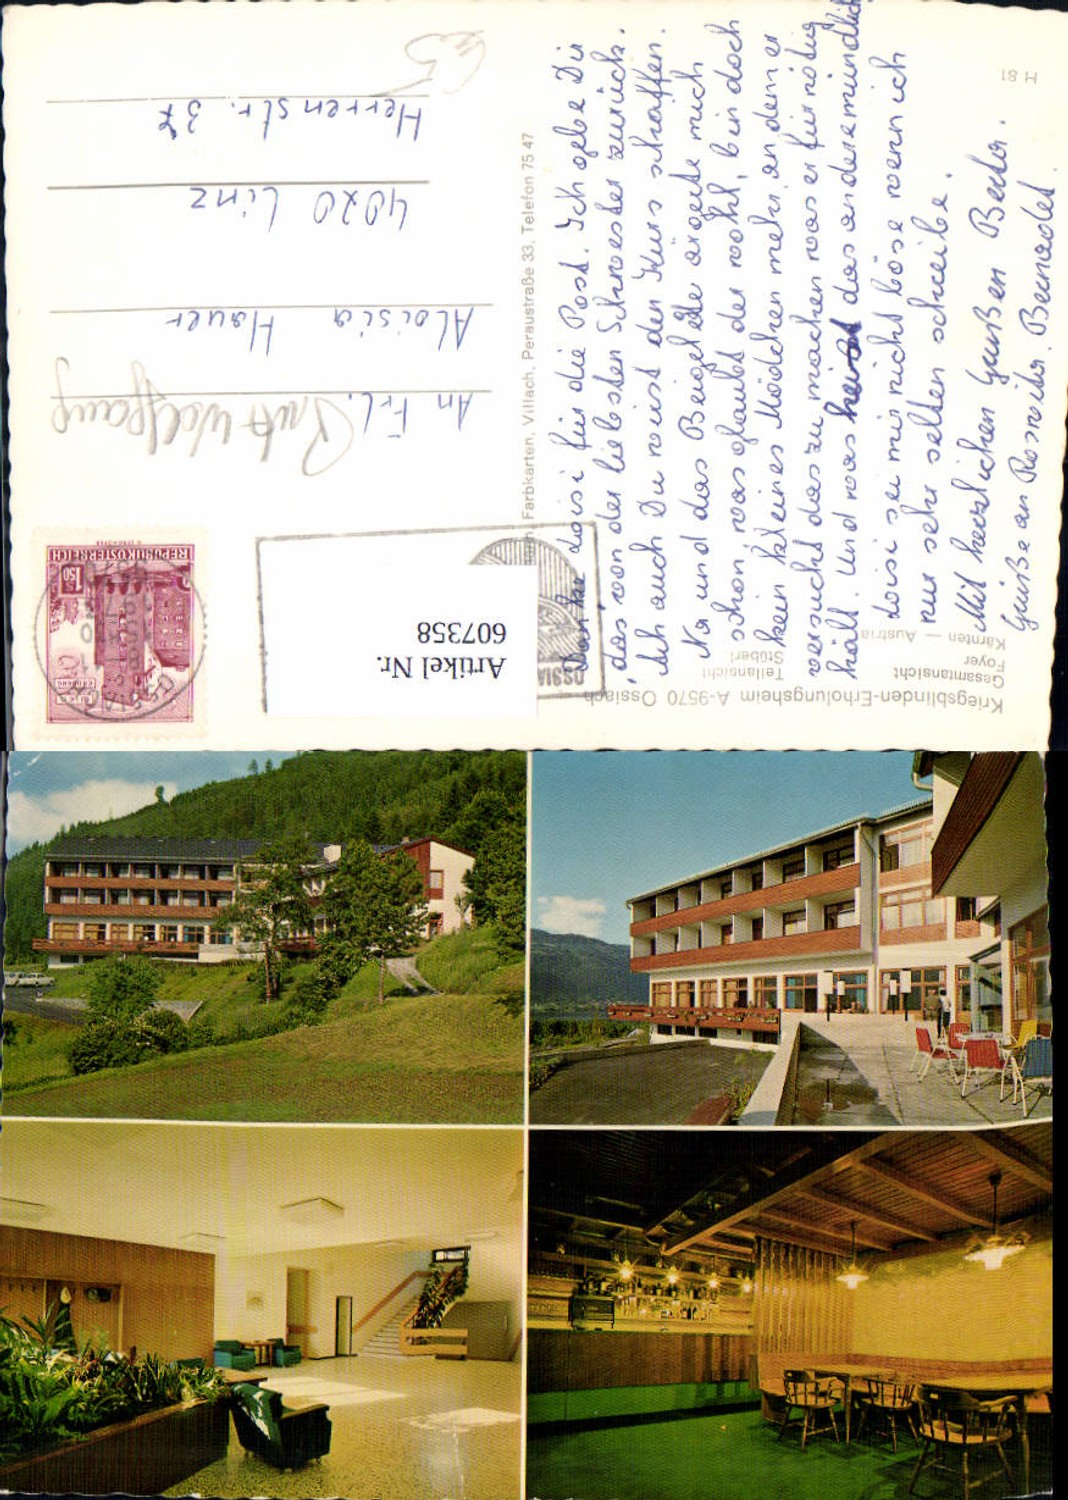 Kriegsblinden-Erholungsheim A-9570 Ossiach
Gesamtansicht Teilansicht
Foyer Stüberl
Kärnten — Austria
H 81
Farbkarten, Villach, Peraustraße 33, Telefon 75 47
Artikel Nr.
607358
OSSIA
REPUBLIK ÖSTERREICH
1.50
An Frl.
Aloisia Hauer
4020 Linz
Herrenstr. 37
Danke Loisi für die Post. Ich gebe Dir
das von der liebsten Schwester zurück.
Ich auch Du wirst den Kurs schaffen.
Na und das Beigelte ärgerte mich
schon, was glaubt der wohl, bin doch
kein kleines Mädchen mehr, an dem er
versucht das zu machen was er für nötig
hält. Und was heisst das andere mündlich
Loisi sei mir nicht böse wenn ich
nur sehr selten schreibe.
Mit herzlichen Grüßen
Grüße an Roswita. Bernadet.